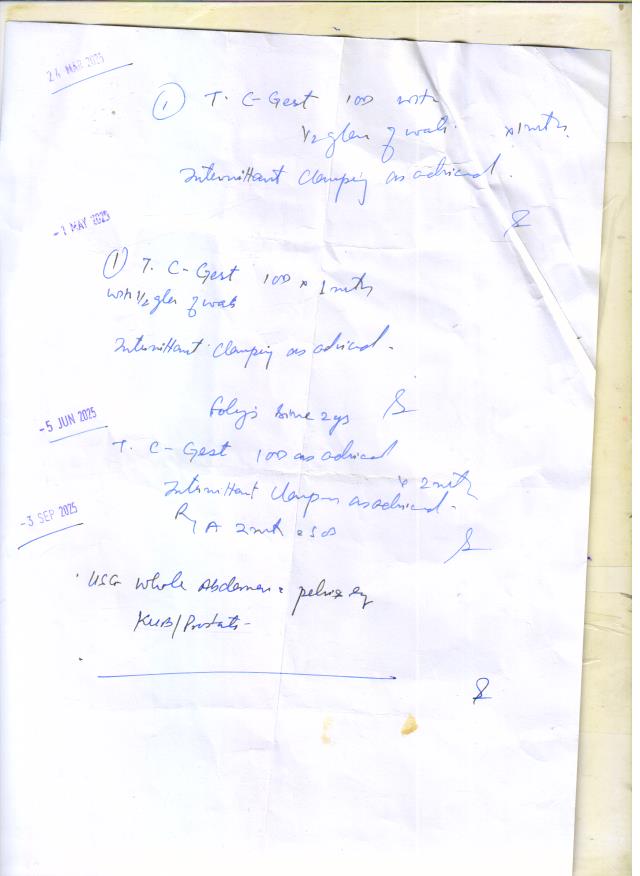 24 MAR 2025
① T. C-Gest 100 with
1/2 glass of water x 1 mth.
Intermittant Clamping as advised.
-1 MAY 2025
① T. C-Gest 100 x 1 mth
with 1/2 glass of water
Intermittant Clamping as advised.
Foley's
-5 JUN 2025
T. C-Gest 100 as advised
x 2 mth
Intermittant Clamping as advised.
-3 SEP 2025
R/A 2 mth
USG whole Abdomen pelvis
KUB/Prostate